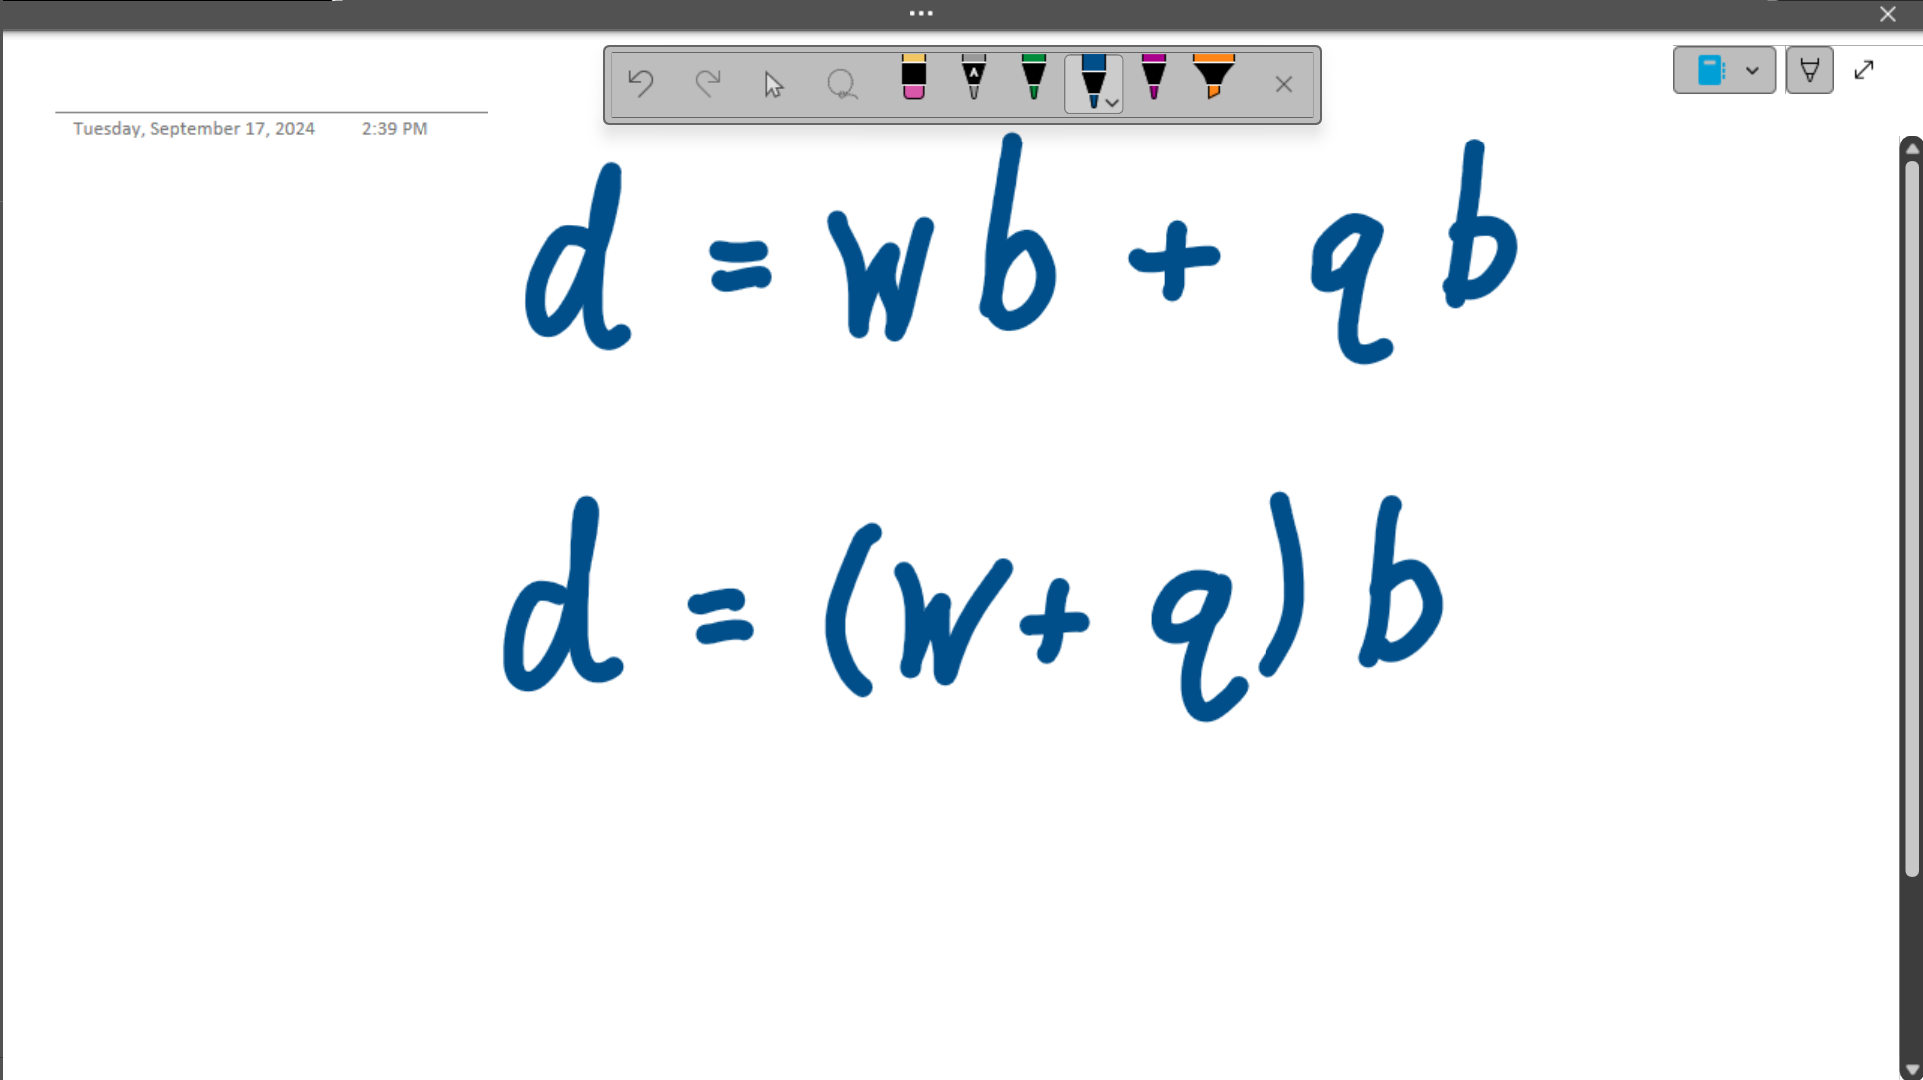 Tuesday, September 17, 2024 2:39 PM
d = wb + qb
d = (w+q)b